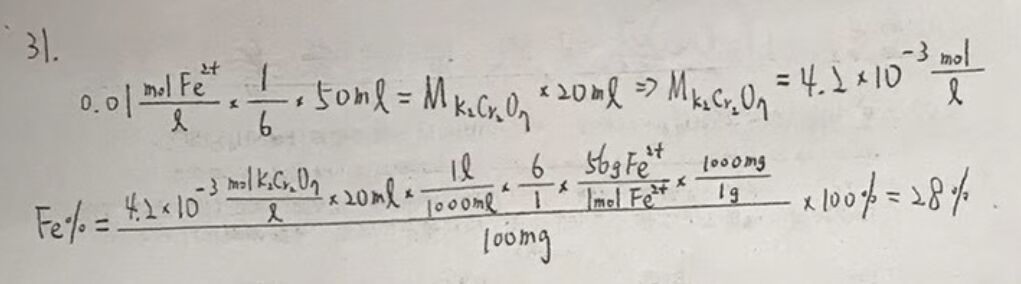 31.
0.01 mol Fe²⁺/l × 1/6 × 50ml = M K₂Cr₂O₇ × 20ml ⇒ M K₂Cr₂O₇ = 4.2 × 10⁻³ mol/l
Fe% = (4.2 × 10⁻³ mol K₂Cr₂O₇/l × 20ml × 1l/1000ml × 6/1 × 56g Fe²⁺/1mol Fe²⁺ × 1000mg/1g) / 100mg × 100% = 28%